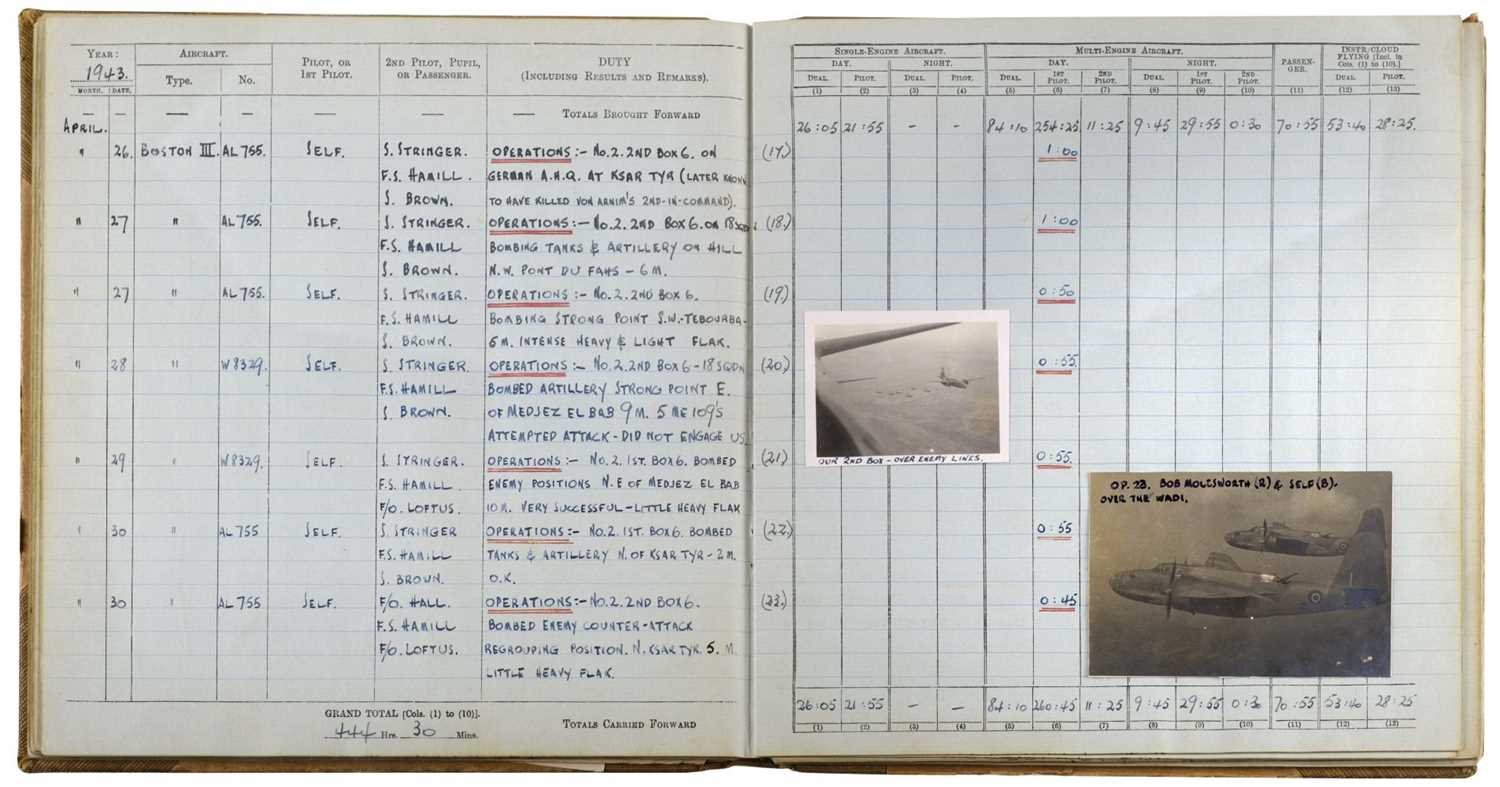 YEAR: AIRCRAFT. PILOT, OR 1ST PILOT. 2ND PILOT, PUPIL, OR PASSENGER. DUTY (INCLUDING RESULTS AND REMARKS).
1943. Type. No.
MONTH. DATE.
— — — — — — — TOTALS BROUGHT FORWARD
APRIL.
" 26. BOSTON III. AL 755. SELF. S. STRINGER. OPERATIONS:- No. 2. 2ND BOX 6. ON (17.)
F.S. HAMILL. GERMAN A.H.Q. AT KSAR TYR (LATER KNOWN
S. BROWN. TO HAVE KILLED VON ARNIM'S 2ND-IN-COMMAND).
" 27 " AL 755. SELF. S. STRINGER. OPERATIONS:- No. 2. 2ND BOX 6. ON 18 SQDN. (18.)
F.S. HAMILL BOMBING TANKS & ARTILLERY ON HILL
S. BROWN. N.W. PONT DU FAHS - 6 M.
" 27 " AL 755. SELF. S. STRINGER. OPERATIONS:- No. 2. 2ND BOX 6. (19.)
F.S. HAMILL BOMBING STRONG POINT S.W.-TEBOURBA-
S. BROWN. 6 M. INTENSE HEAVY & LIGHT FLAK.
" 28 " W 8329. SELF. S. STRINGER OPERATIONS:- No. 2. 2ND BOX 6 - 18 SQDN (20.)
F.S. HAMILL BOMBED ARTILLERY STRONG POINT E.
S. BROWN. OF MEDJEZ EL BAB 9 M. 5 ME 109'S
ATTEMPTED ATTACK - DID NOT ENGAGE US.
" 29 " W 8329. SELF. S. STRINGER. OPERATIONS:- No. 2. 1ST. BOX 6. BOMBED (21.)
F.S. HAMILL. ENEMY POSITIONS N.E OF MEDJEZ EL BAB
F/O. LOFTUS. 10 M. VERY SUCCESSFUL - LITTLE HEAVY FLAK
" 30 " AL 755 SELF. S. STRINGER OPERATIONS:- No. 2. 1ST. BOX 6. BOMBED (22.)
F.S. HAMILL TANKS & ARTILLERY N. OF KSAR TYR - 2 M.
S. BROWN. O.K.
" 30 " AL 755 SELF. F/O. HALL. OPERATIONS:- No. 2. 2ND BOX 6. (23.)
F.S. HAMILL BOMBED ENEMY COUNTER-ATTACK
F/O. LOFTUS. REGROUPING POSITION. N. KSAR TYR. 5. M.
LITTLE HEAVY FLAK.
GRAND TOTAL [Cols. (1) to (10)].
444 Hrs. 30 Mins.
TOTALS CARRIED FORWARD
SINGLE-ENGINE AIRCRAFT. MULTI-ENGINE AIRCRAFT. PASSEN-GER. INSTR/CLOUD FLYING [Incl. in Cols. (1) to (10).]
DAY. NIGHT. DAY. NIGHT.
DUAL. PILOT. DUAL. PILOT. DUAL. 1ST PILOT. 2ND PILOT. DUAL. 1ST PILOT. 2ND PILOT. DUAL. PILOT.
(1) (2) (3) (4) (5) (6) (7) (8) (9) (10) (11) (12) (13)
26:05 21:55 - - 84:10 254:25 11:25 9:45 29:55 0:30 70:55 53:40 28:25.
1:00
1:00
0:50
0:55
0:55
0:55
0:45
OUR 2ND BOX - OVER ENEMY LINES.
OP. 23. BOB MOLESWORTH (R) & SELF (B).
OVER THE WADI.
26:05 21:55 - - 84:10 260:45 11:25 9:45 29:55 0:30 70:55 53:40 28:25
(1) (2) (3) (4) (5) (6) (7) (8) (9) (10) (11) (12) (13)